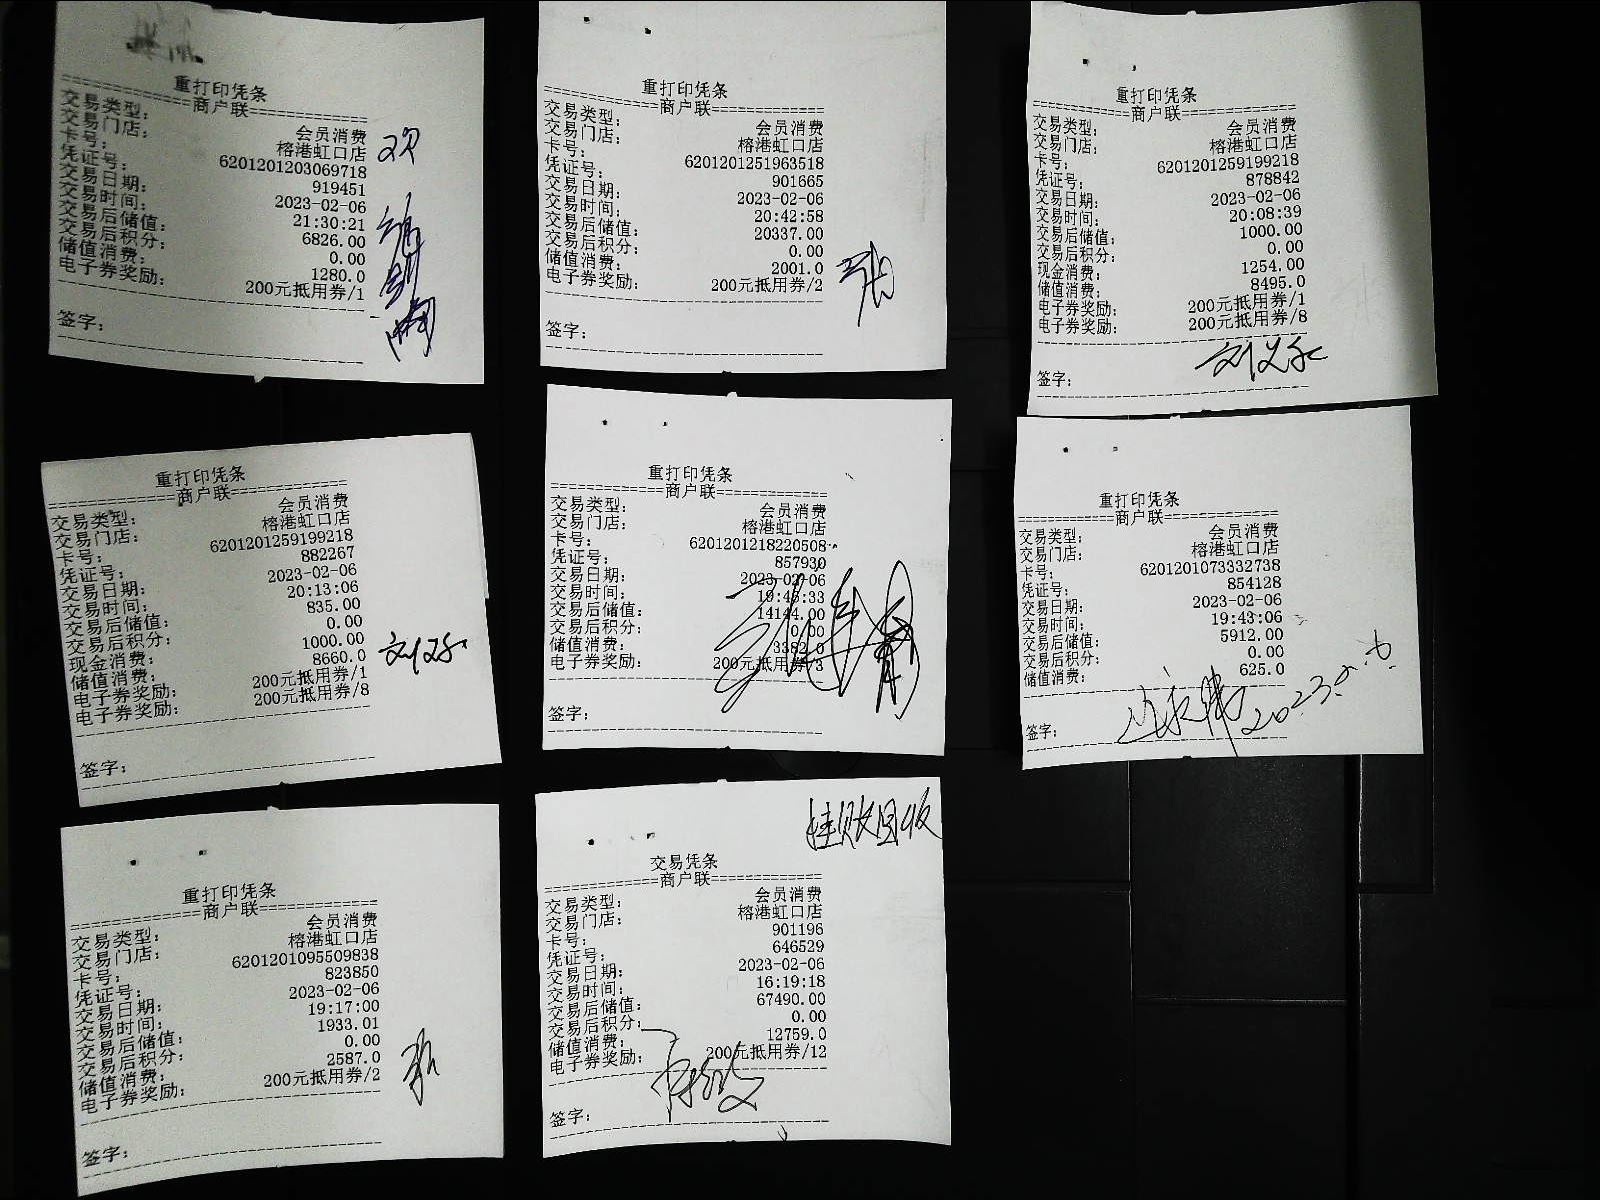 重打印凭条
============商户联============
交易类型: 会员消费
交易门店: 榕港虹口店
卡号: 6201201203069718
凭证号: 919451
交易日期: 2023-02-06
交易时间: 21:30:21
交易后储值: 6826.00
交易后积分: 0.00
储值消费: 1280.0
电子券奖励: 200元抵用券/1
签字:
重打印凭条
============商户联============
交易类型: 会员消费
交易门店: 榕港虹口店
卡号: 6201201251963518
凭证号: 901665
交易日期: 2023-02-06
交易时间: 20:42:58
交易后储值: 20337.00
交易后积分: 0.00
储值消费: 2001.0
电子券奖励: 200元抵用券/2
签字:
重打印凭条
============商户联============
交易类型: 会员消费
交易门店: 榕港虹口店
卡号: 6201201259199218
凭证号: 878842
交易日期: 2023-02-06
交易时间: 20:08:39
交易后储值: 1000.00
交易后积分: 0.00
现金消费: 1254.00
储值消费: 8495.0
电子券奖励: 200元抵用券/1
电子券奖励: 200元抵用券/8
签字:
重打印凭条
============商户联============
交易类型: 会员消费
交易门店: 榕港虹口店
卡号: 6201201259199218
凭证号: 882267
交易日期: 2023-02-06
交易时间: 20:13:06
交易后储值: 835.00
交易后积分: 0.00
现金消费: 1000.00
储值消费: 8660.0
电子券奖励: 200元抵用券/1
电子券奖励: 200元抵用券/8
签字:
重打印凭条
============商户联============
交易类型: 会员消费
交易门店: 榕港虹口店
卡号: 6201201218220508
凭证号: 857930
交易日期: 2023-02-06
交易时间: 19:48:33
交易后储值: 14144.00
交易后积分: 0.00
储值消费: 3382.0
电子券奖励: 200元抵用券/3
签字:
重打印凭条
============商户联============
交易类型: 会员消费
交易门店: 榕港虹口店
卡号: 6201201073332738
凭证号: 854128
交易日期: 2023-02-06
交易时间: 19:43:06
交易后储值: 5912.00
交易后积分: 0.00
储值消费: 625.0
签字: 2023.2.6
重打印凭条
============商户联============
交易类型: 会员消费
交易门店: 榕港虹口店
卡号: 6201201095509838
凭证号: 823850
交易日期: 2023-02-06
交易时间: 19:17:00
交易后储值: 1933.01
交易后积分: 0.00
储值消费: 2587.0
电子券奖励: 200元抵用券/2
签字:
挂账回收
交易凭条
============商户联============
交易类型: 会员消费
交易门店: 榕港虹口店
卡号: 901196
凭证号: 646529
交易日期: 2023-02-06
交易时间: 16:19:18
交易后储值: 67490.00
交易后积分: 0.00
储值消费: 12759.0
电子券奖励: 200元抵用券/12
签字: